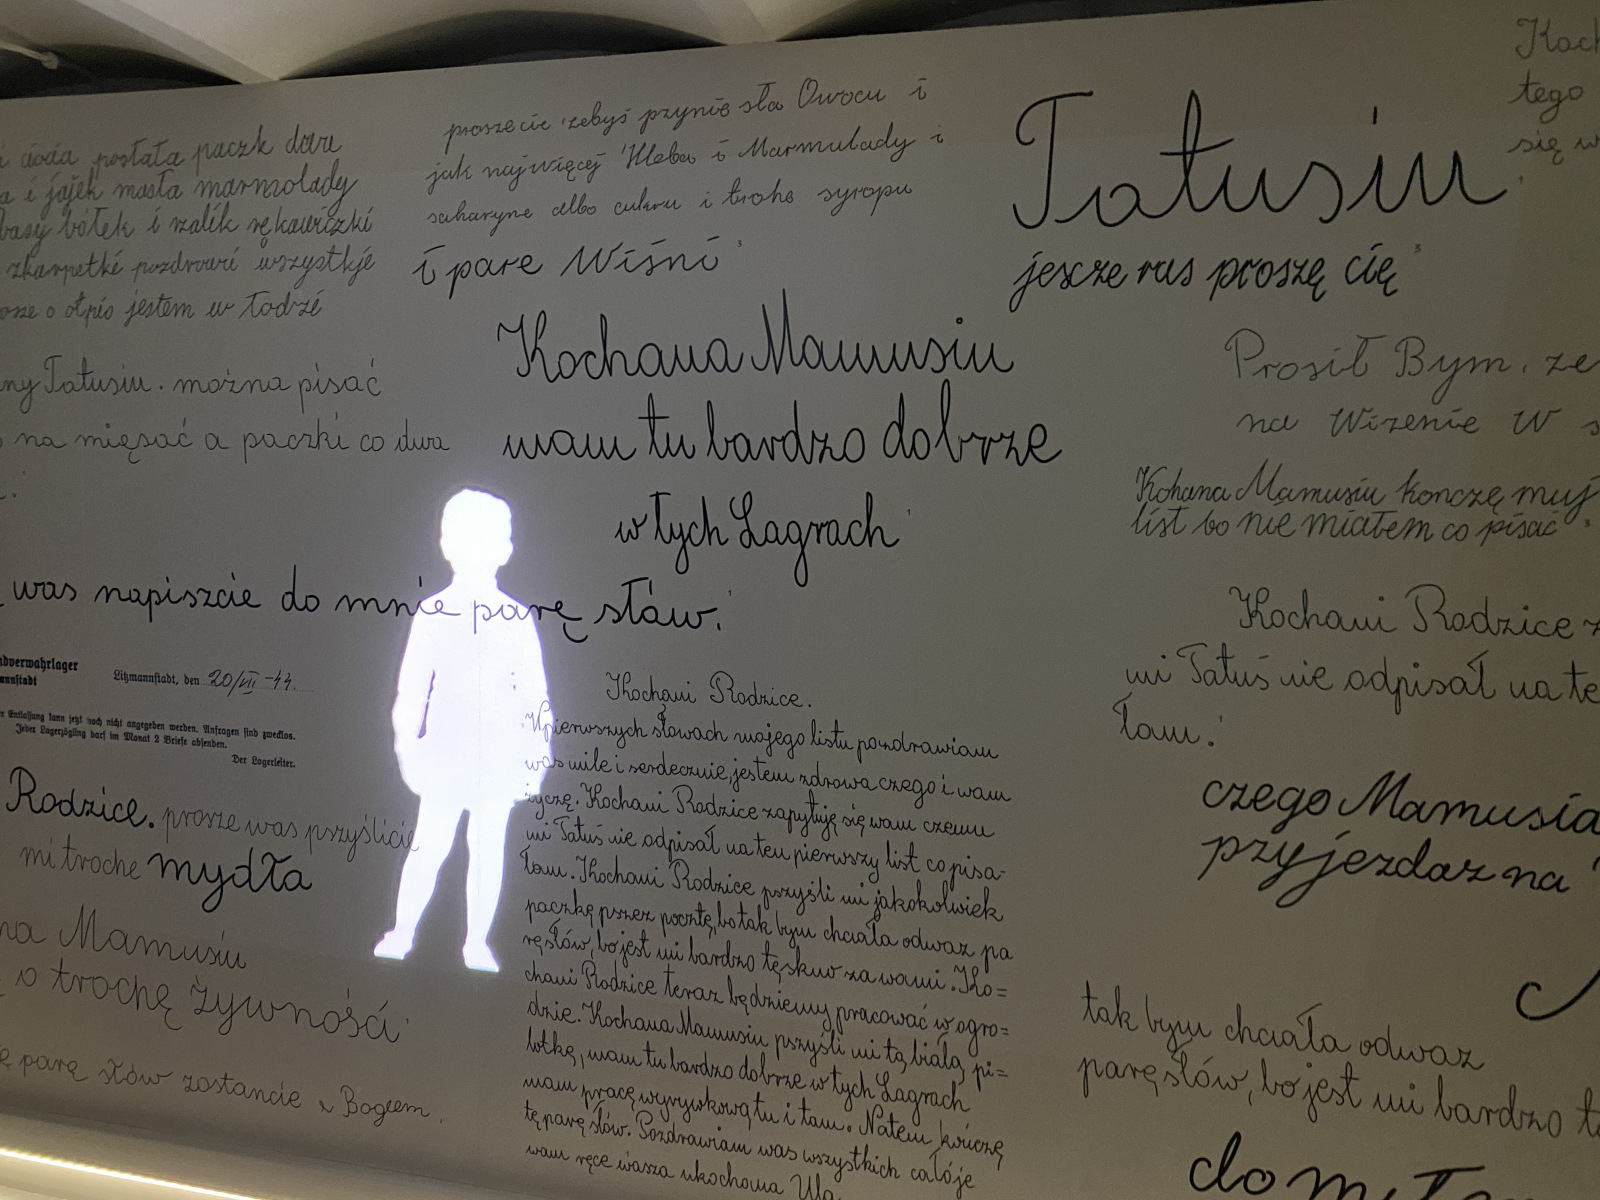 ciocia postała paczk daru
i jajek masła marmolady
bułek i szalik rękawiczki
zkarpetki pozdrowi wszystkje
o otpis jestem w Łodzi
Tatusiu. można pisać
na mięsąć a paczki co dwa
was napiszcie do mnie parę słów.
Litzmannstadt, den 20/VII -44.
Entlassung kann jetzt noch nicht angegeben werden. Anfragen sind zwecklos.
Jeder Lagerzögling darf im Monat 2 Briefe absenden.
Der Lagerleiter.
Rodzice. prosze was pszyślicie
mi troche mydła
Mamusiu
o trochę żywności
parę słów zostańcie z Bogiem.
prosze cie żebyś przyniesła Owocu i
jak najwięcej Hleba i Marmulady i
saharyne albo cukru i trohe syropu
i pare Wiśni
Kochana Mamusiu
mam tu bardzo dobrze
w tych Lagrach
Kochani Rodzice.
W pierwszych słowach mojego listu pozdrawiam
was mile i serdecznie, jestem zdrowa czego i wam
życzę. Kochani Rodzice zapytuję się wam czemu
mi Tatuś nie odpisał na ten pierwszy list co pisa-
łam. Kochani Rodzice pszyśli mi jakokolwiek
paczkę pszez pocztę, bo tak bym chciała odwaz pa
rę słów, bo jest mi bardzo tęskno za wami. Ko=
chani Rodzice teraz będziemy pracować w ogro=
dzie. Kochana Mamusiu pszyśli mi tą białą pi=
lotkę, mam tu bardzo dobrze w tych Lagrach
mam pracę wyrywkową tu i tam. Na tem kończę
tę parę słów. Pozdrawiam was wszystkich całóje
wam ręce wasza ukochana Ula.
Tatusiu
jescze ras proszę cię
tego
się
Prosił Bym. że
na Wizenie W
Kohana Mamusiu kończę muj
list bo nie miałem co pisać
Kochani Rodzice
mi Tatuś nie odpisał na te
łam.
czego Mamusia
przyjezdaz na
tak bym chciała odwaz
parę słów, bo jest mi bardzo
do